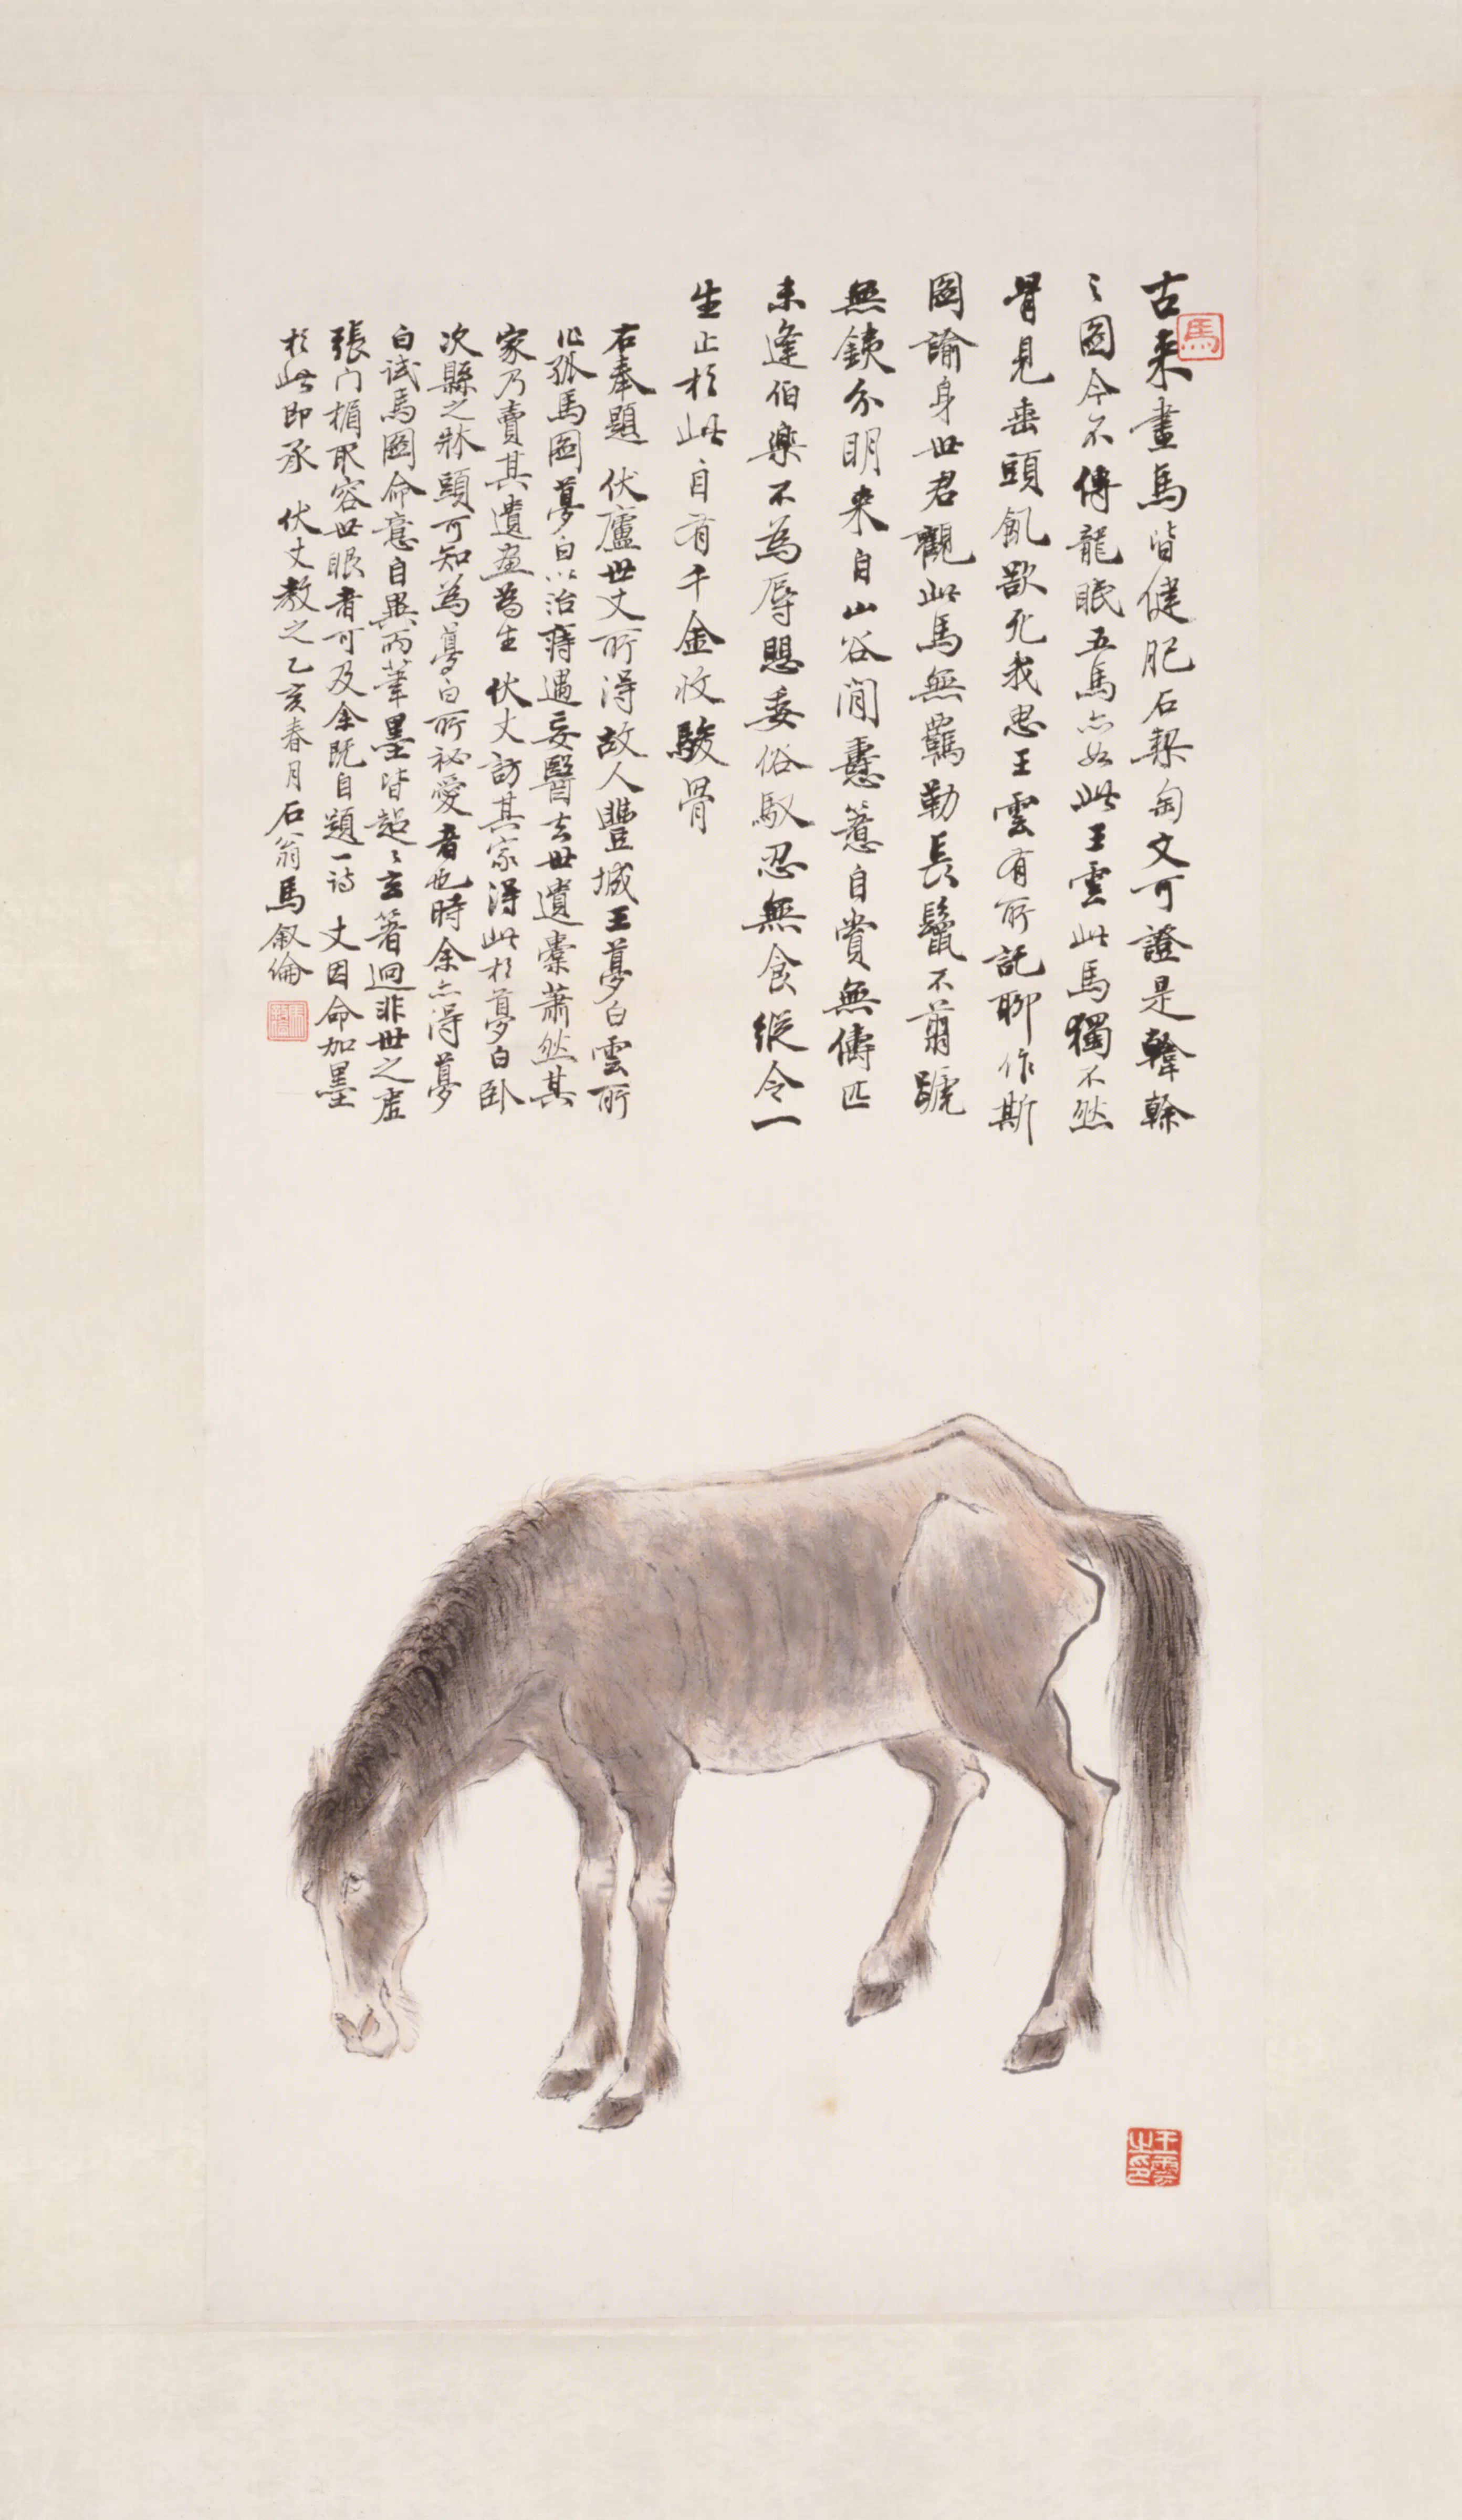 古來畫馬皆健肥石槧匋文可證是韓榦
之圖今不傳龍眠五馬亦如此王雲此馬獨不然
骨見垂頭飢欲死我思王雲有所託聊作斯
圖諭身世君觀此馬無羈勒長鬣不翦蹏
無鐵分明來自山谷間薏自賞無儔匹
未逢伯樂不為辱委俗馭忍無食縱令一
生止於此自有千金收駿骨
右奉題 伏廬世丈所得故人豐城王夢白雲所
作孤馬圖夢白以治痔遇妄醫去世遺橐蕭然其
家乃賣其遺畫為生伏丈訪其家得此於夢白臥
次縣之牀頭可知為夢白所祕愛者也時余亦得夢
白試馬圖命意自異而筆墨皆超超玄著迥非世之虛
張門楣取容世眼者可及余既自題一詩 丈因命加墨
於此即承 伏丈教之乙亥春月石翁馬叙倫
馬
王雲之印